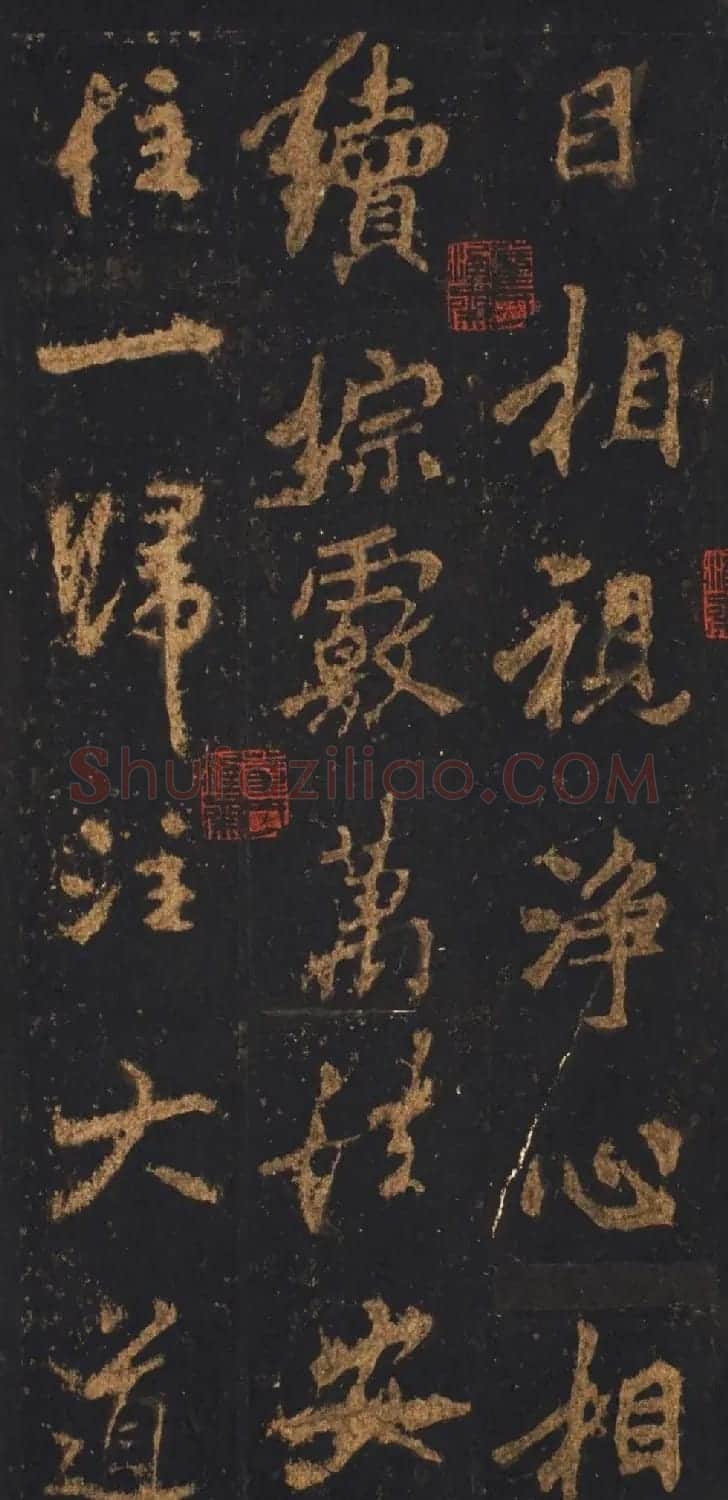 目相視淨心相
續綜覈萬法安
住一歸注大道
Shufaziliao.COM